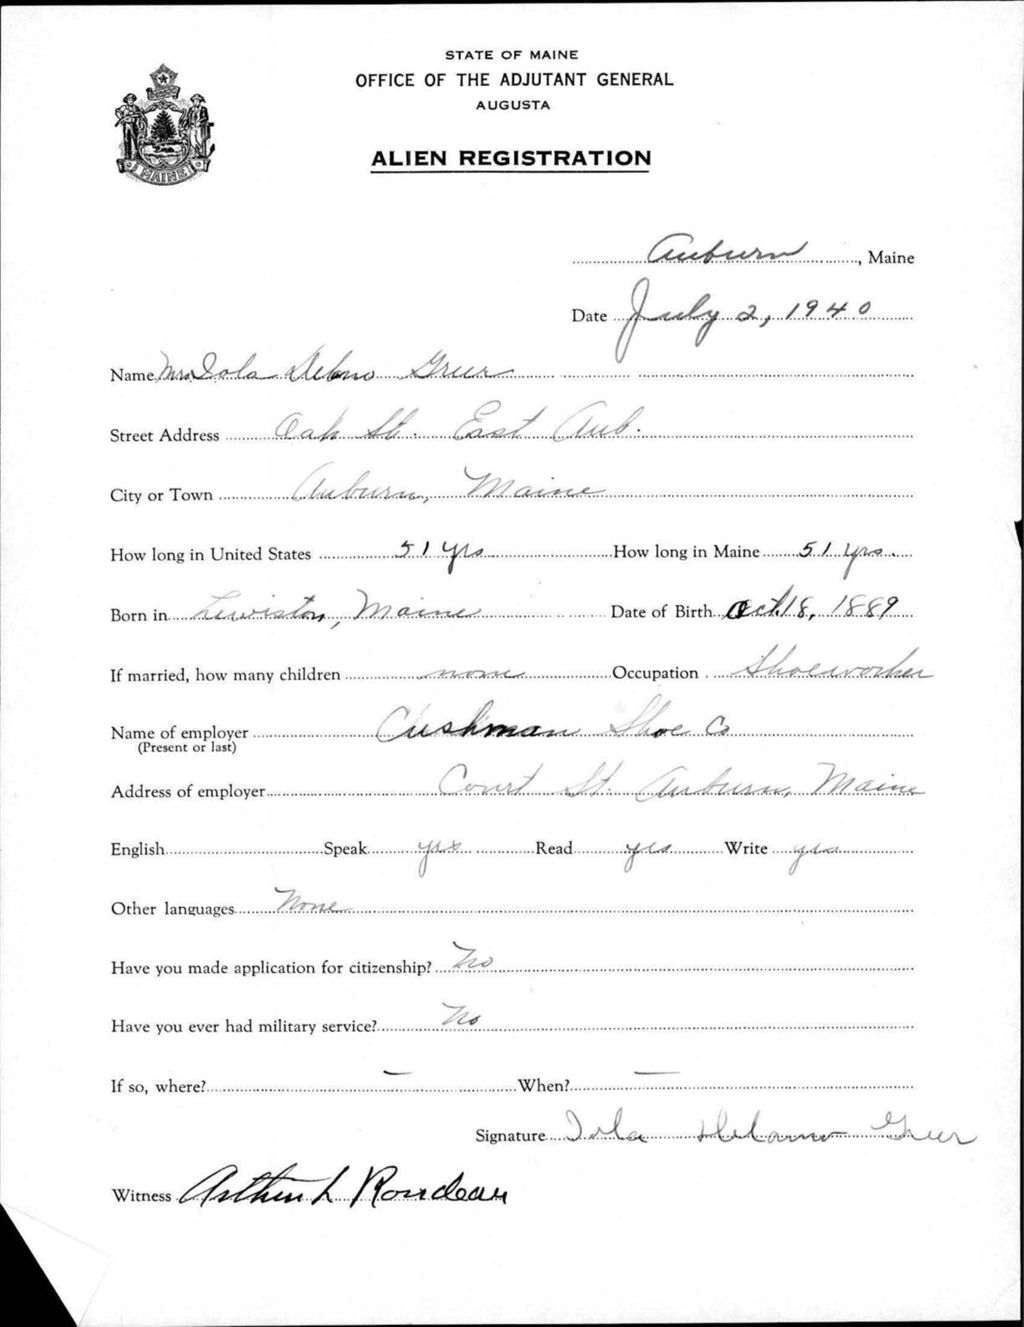 STATE OF MAINE
OFFICE OF THE ADJUTANT GENERAL
AUGUSTA
ALIEN REGISTRATION
MAINE
Auburn, Maine
Date July 2, 1940
Name Mrs Iola Greer
Street Address Oak St. East Aub.
City or Town Auburn, Maine
How long in United States 51 yrs How long in Maine 51 yrs.
Born in Lewiston, Maine Date of Birth Oct. 18, 1889
If married, how many children none Occupation Shoeworker
Name of employer Cushman Shoe Co
(Present or last)
Address of employer Court St. Auburn, Maine
English Speak yes Read yes Write yes
Other languages None
Have you made application for citizenship? No
Have you ever had military service? No
If so, where? — When? —
Signature Iola Greer
Witness Arthur L Rondeau